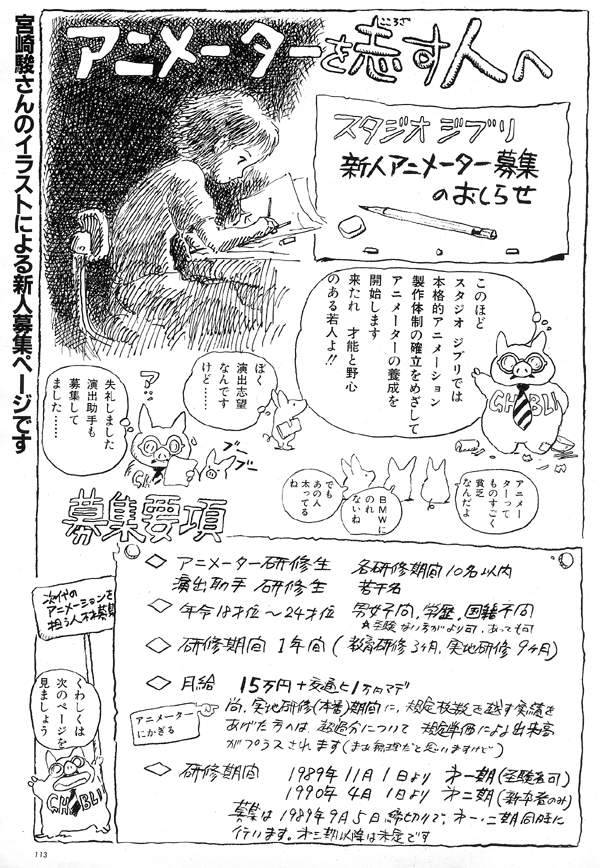 宮崎駿さんのイラストによる新人募集ページです
アニメーターを志す人へ
こころざ
スタジオ ジブリ
新人アニメーター募集
のおしらせ
このほど
スタジオ ジブリでは
本格的アニメーション
製作体制の確立をめざして
アニメーターの養成を
開始します
来たれ 才能と野心
のある若人よ!!
GHIBLI
ぼく
演出志望
なんです
けど……
?
失礼しました
演出助手も
募集して
ました……
ブーブー
アニメー
ターって
ものすごく
貧乏
なんだよ
BMWに
のれ
ないね
でも
あの人
太ってる
ね
募集要項
◇ アニメーター研修生 各研修期間10名以内
演出助手 研修生 若干名
◇ 年令18才位〜24才位 男女不問、学歴、国籍不問
◇ 研修期間 1年間(教育研修3ヶ月、実地研修9ヶ月)
◇ 月給 15万円+交通ヒ1万円マデ
アニメーター
にかぎる
尚、実地研修(本番)期間に、規定枚数を越す実績を
あげた方へは、超過分について 規定単価により出来高
がプラスされます(まず無理だと思いますけど)
◇ 研修期間 1989年11月1日より 第一期(経験者可)
1990年4月1日より 第二期(新卒者のみ)
募集は1989年9月5日締切りで、第一・二期同時に
行います。第三期以降は未定です
次代の
アニメーションを
担う人材募集
くわしくは
次のページを
見ましょう
GHIBLI
113